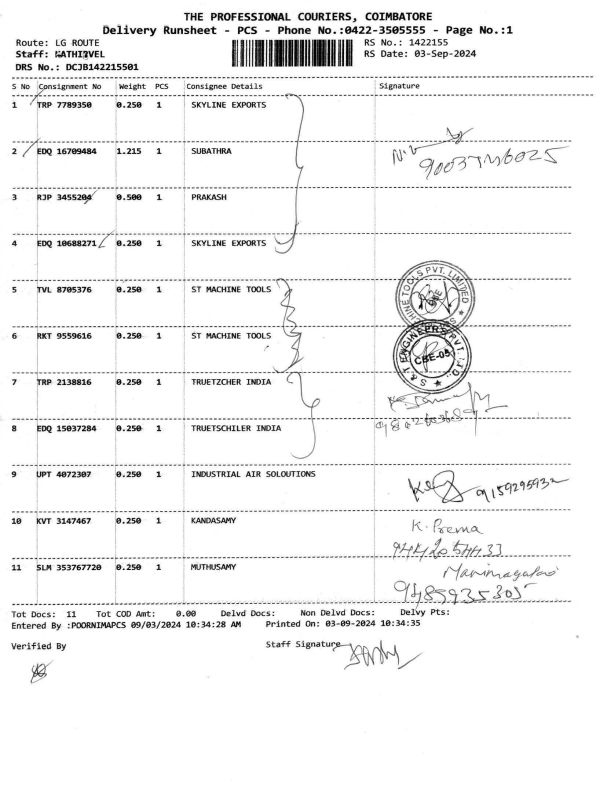 THE PROFESSIONAL COURIERS, COIMBATORE
Delivery Runsheet - PCS - Phone No.:0422-3505555 - Page No.:1
Route: LG ROUTE RS No.: 1422155
Staff: KATHIRVEL RS Date: 03-Sep-2024
DRS No.: DCJB142215501
S No Consignment No Weight PCS Consignee Details Signature
1 TRP 7789350 0.250 1 SKYLINE EXPORTS
2 EDQ 16709484 1.215 1 SUBATHRA
3 RJP 3455204 0.500 1 PRAKASH
4 EDQ 10688271 0.250 1 SKYLINE EXPORTS
5 TVL 8705376 0.250 1 ST MACHINE TOOLS
6 RKT 9559616 0.250 1 ST MACHINE TOOLS
S & T ENGINEERS PVT. LTD. CBE-05
7 TRP 2138816 0.250 1 TRUETZCHER INDIA
8 EDQ 15037284 0.250 1 TRUETSCHILER INDIA
9 UPT 4072307 0.250 1 INDUSTRIAL AIR SOLOUTIONS
9159295932
10 KVT 3147467 0.250 1 KANDASAMY
K. Prema
9442054433
11 SLM 353767720 0.250 1 MUTHUSAMY
9489935305
Tot Docs: 11 Tot COD Amt: 0.00 Delvd Docs: Non Delvd Docs: Delvy Pts:
Entered By :POORNIMAPCS 09/03/2024 10:34:28 AM Printed On: 03-09-2024 10:34:35
Verified By Staff Signature